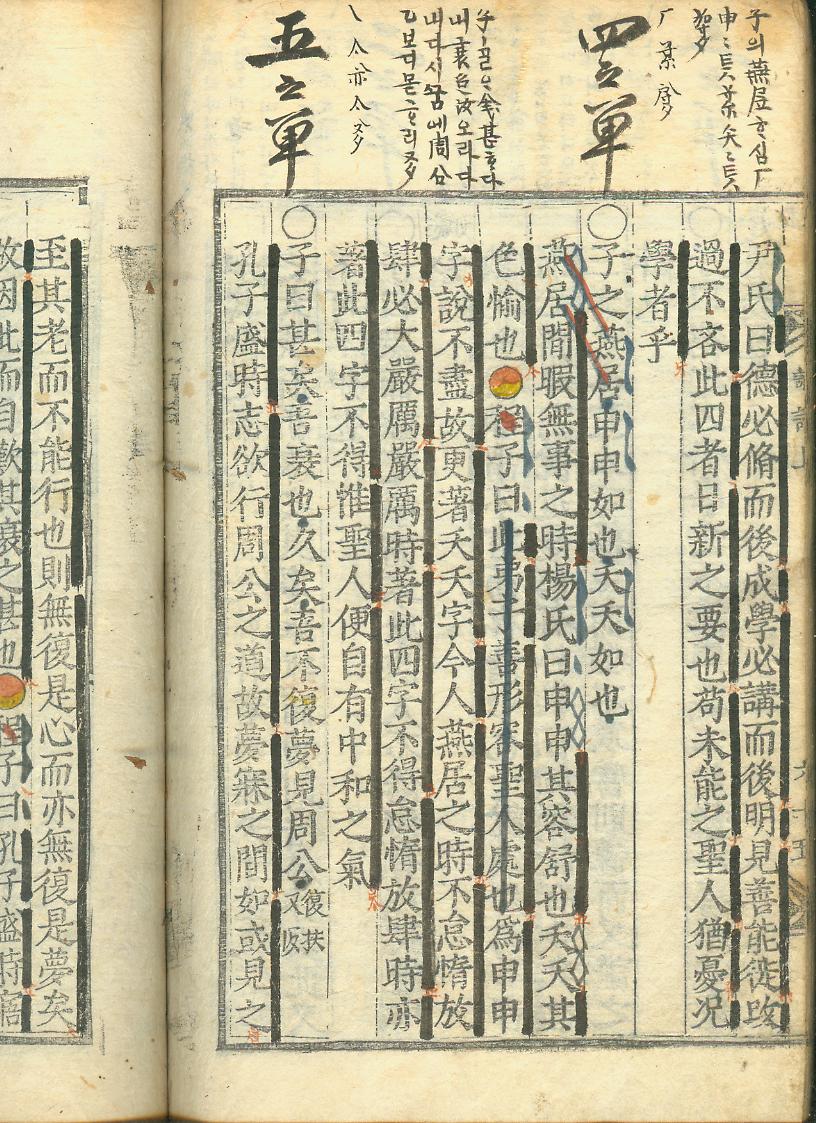 子의燕居
四之單
五之單
尹氏曰德必脩而後成學必講而後明見善能徙改
過不吝此四者日新之要也苟未能之聖人猶憂况
學者乎
○子之燕居申申如也夭夭如也
燕居閒暇無事之時楊氏曰申申其容舒也夭夭其
色愉也程子曰此弟子善形容聖人處也爲申申
字說不盡故更著夭夭字今人燕居之時不怠惰放
肆必大嚴厲嚴厲時著此四字不得怠惰放肆時亦
著此四字不得惟聖人便自有中和之氣
○子曰甚矣吾衰也久矣吾不復夢見周公復扶又反
孔子盛時志欲行周公之道故夢寐之間如或見之
至其老而不能行也則無復是心而亦無復是夢矣
故因此而自歎其衰之甚也程子曰孔子盛時寤